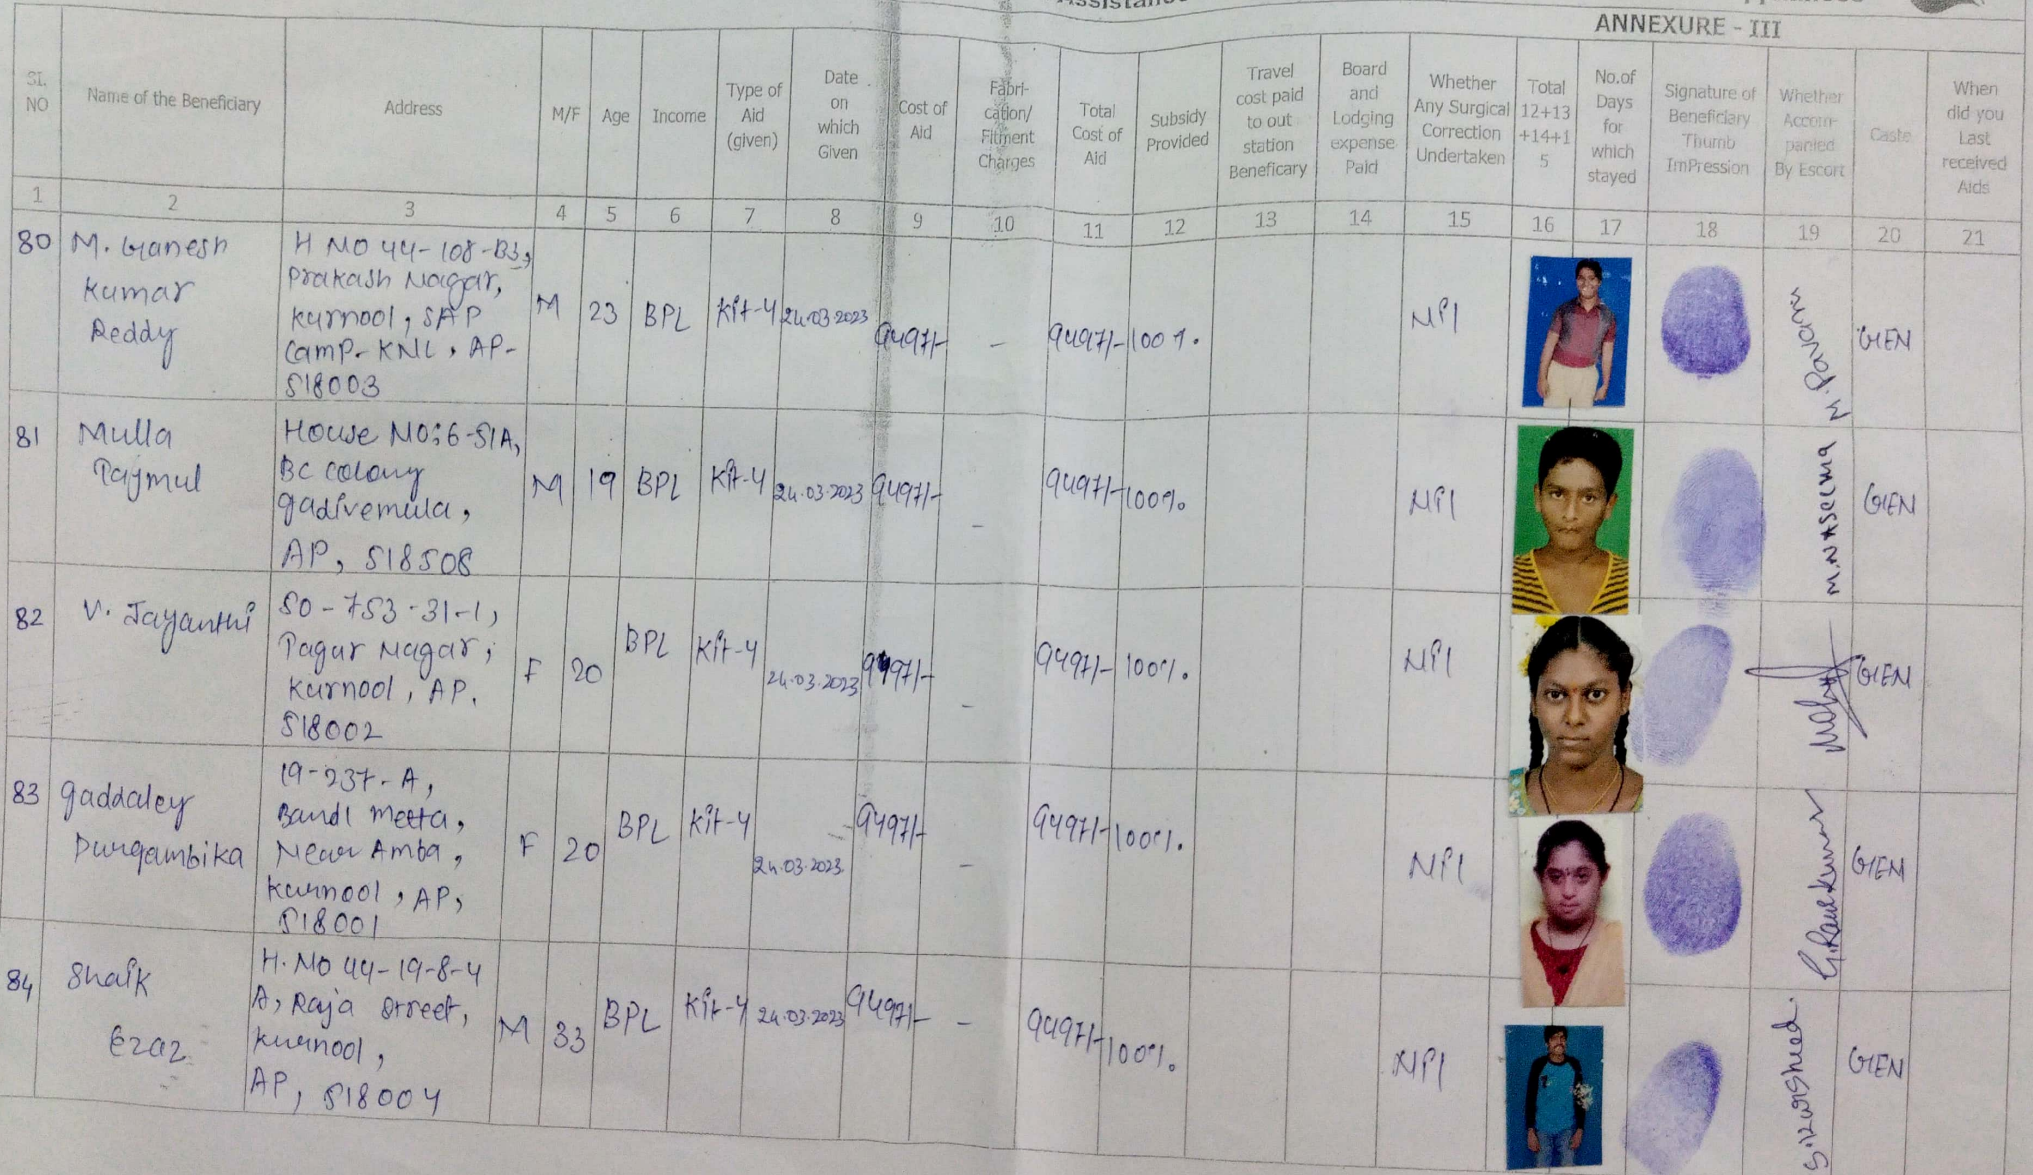 ANNEXURE - III
SI. NO
Name of the Beneficiary
Address
M/F
Age
Income
Type of Aid (given)
Date on which Given
Cost of Aid
Fabri-cation/ Fitment Charges
Total Cost of Aid
Subsidy Provided
Travel cost paid to out station Beneficary
Board and Lodging expense Paid
Whether Any Surgical Correction Undertaken
Total 12+13 +14+1 5
No.of Days for which stayed
Signature of Beneficiary Thumb ImPression
Whether Accom-panied By Escort
Caste
When did you Last received Aids
1 2 3 4 5 6 7 8 9 10 11 12 13 14 15 16 17 18 19 20 21
80 M. Ganesh Kumar Reddy
H NO 44-108-B3,
Prakash Nagar,
Kurnool, SAP
Camp- KNL, AP-
518003
M 23 BPL Kit-4 24.03.2023 9497/- - 9497/- 100%. Nil M. Pavani GEN
81 Mulla Tajmul
House NO:6-51A,
BC colony
gadivemula,
AP, 518508
M 19 BPL Kit-4 24.03.2023 9497/- - 9497/- 100%. Nil M. NASEEMA GEN
82 V. Jayanthi
50-753-31-1,
Pagar Nagar,
Kurnool, AP.
518002
F 20 BPL Kit-4 24.03.2023 9497/- - 9497/- 100%. Nil GEN
83 gaddaley Durgambika
19-237-A,
Bandi metta,
Near Amba,
Kurnool, AP,
518001
F 20 BPL Kit-4 24.03.2023 9497/- - 9497/- 100%. Nil GEN
84 Shaik Ezaz
H.NO 44-19-8-4
A, Raja street,
Kurnool,
AP, 518004
M 33 BPL Kit-4 24.03.2023 9497/- - 9497/- 100%. Nil GEN